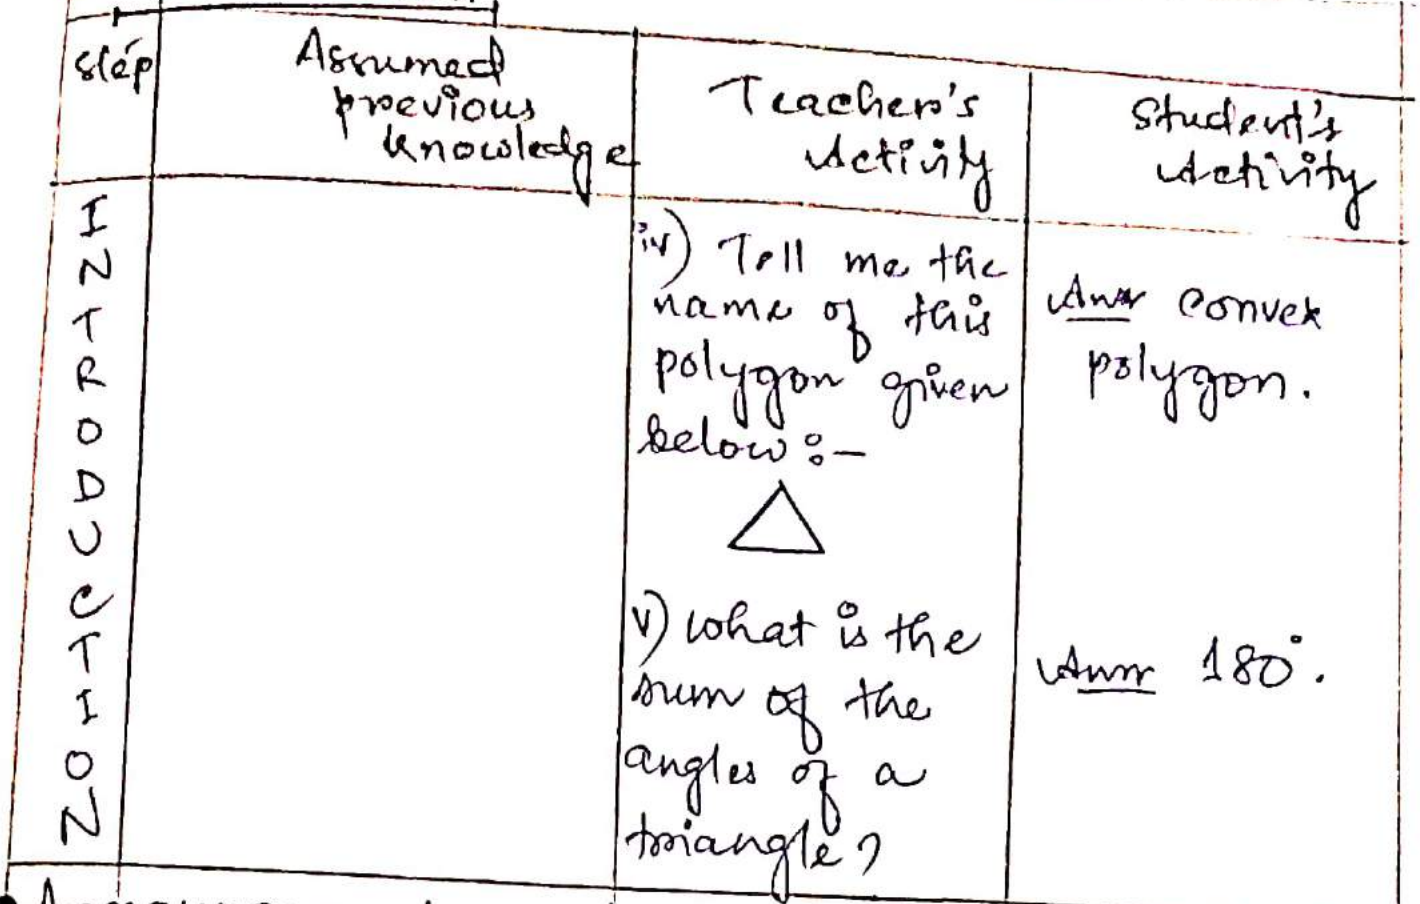 Step
Assumed
previous
knowledge
Teacher's
Activity
Student's
Activity
INTRODUCTION
iv) Tell me the
name of this
polygon given
below :-
Ans convex
polygon.
v) What is the
sum of the
angles of a
triangle?
Ans 180°.